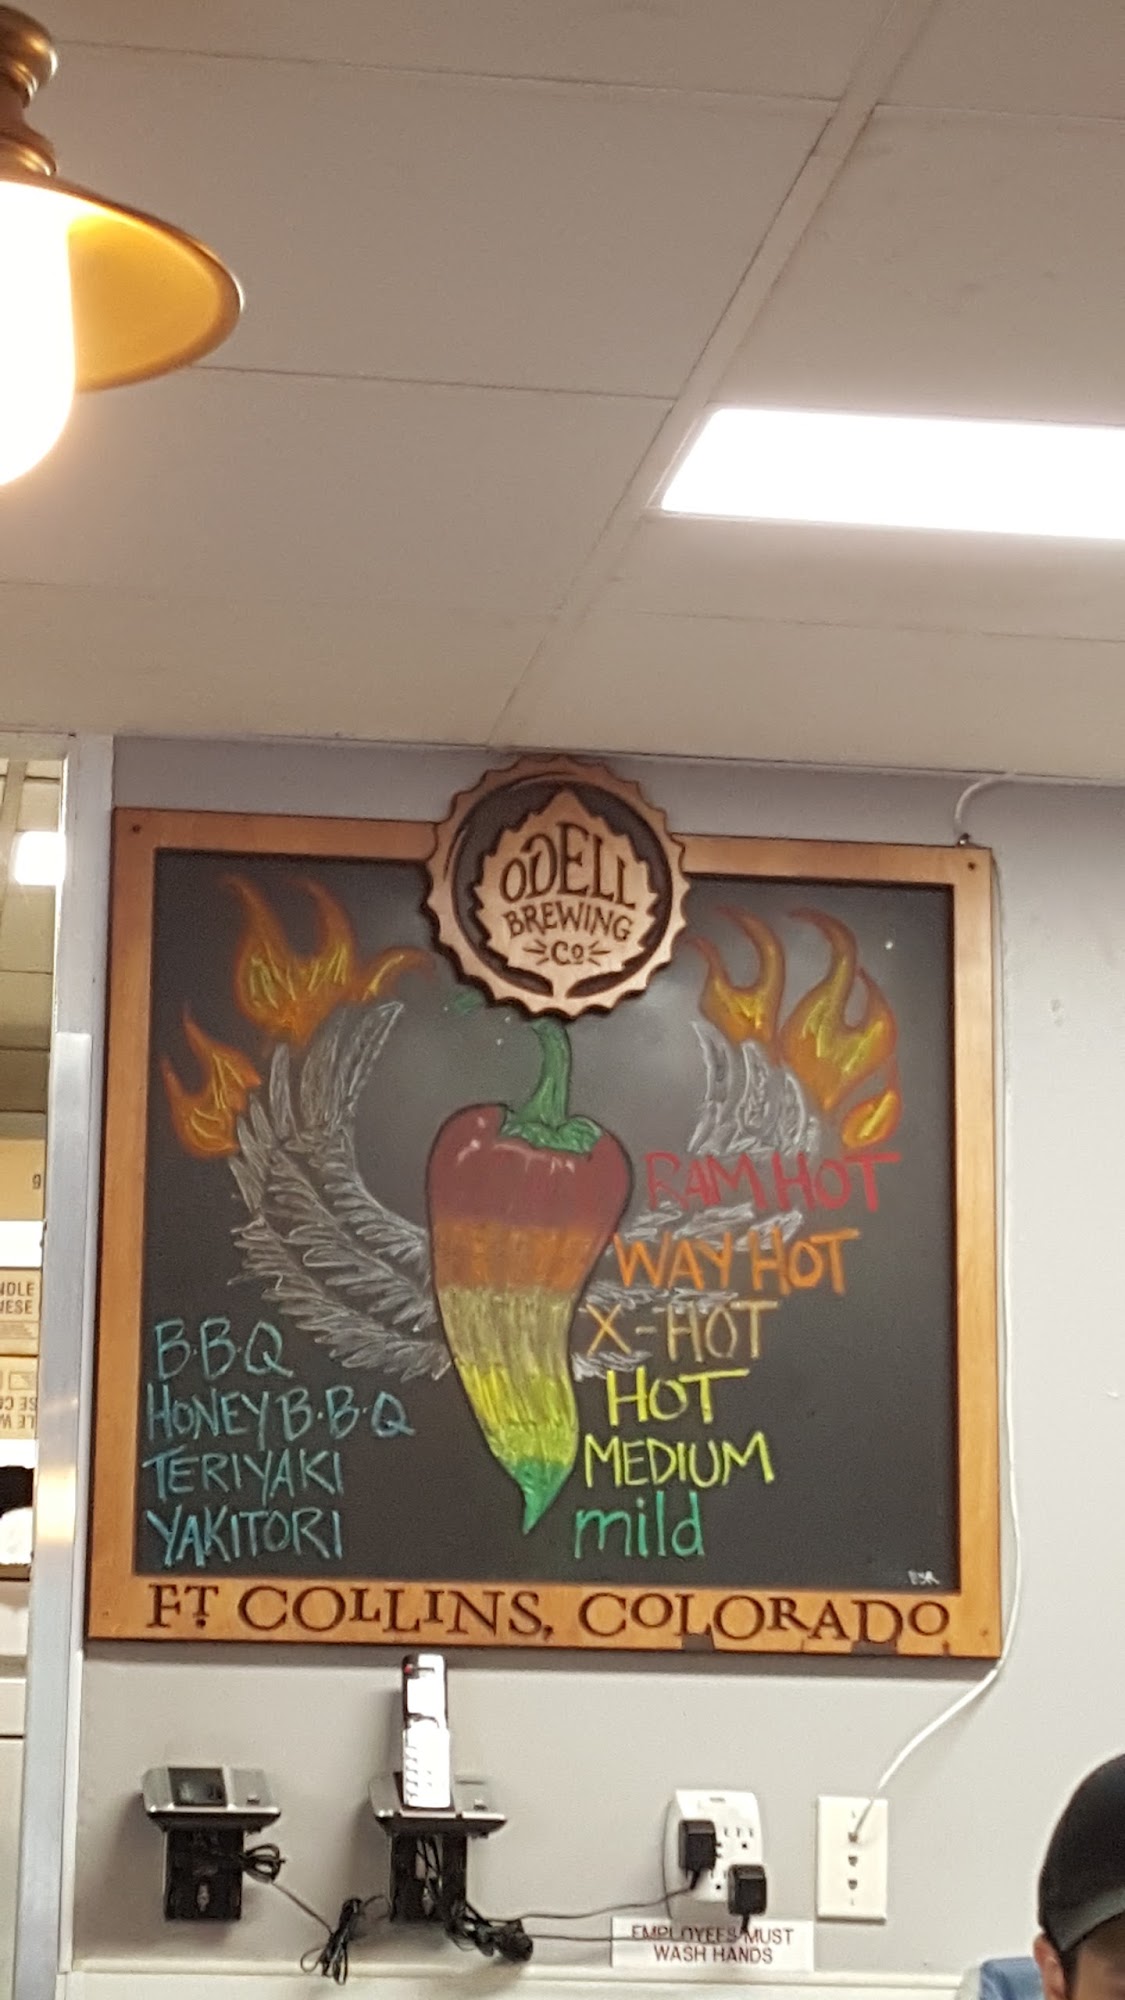 ODELL
BREWING
Co
RAM HOT
WAY HOT
X-HOT
HOT
MEDIUM
mild
B·B·Q
HONEY B·B·Q
TERIYAKI
YAKITORI
FT. COLLINS, COLORADO
EMPLOYEES MUST
WASH HANDS